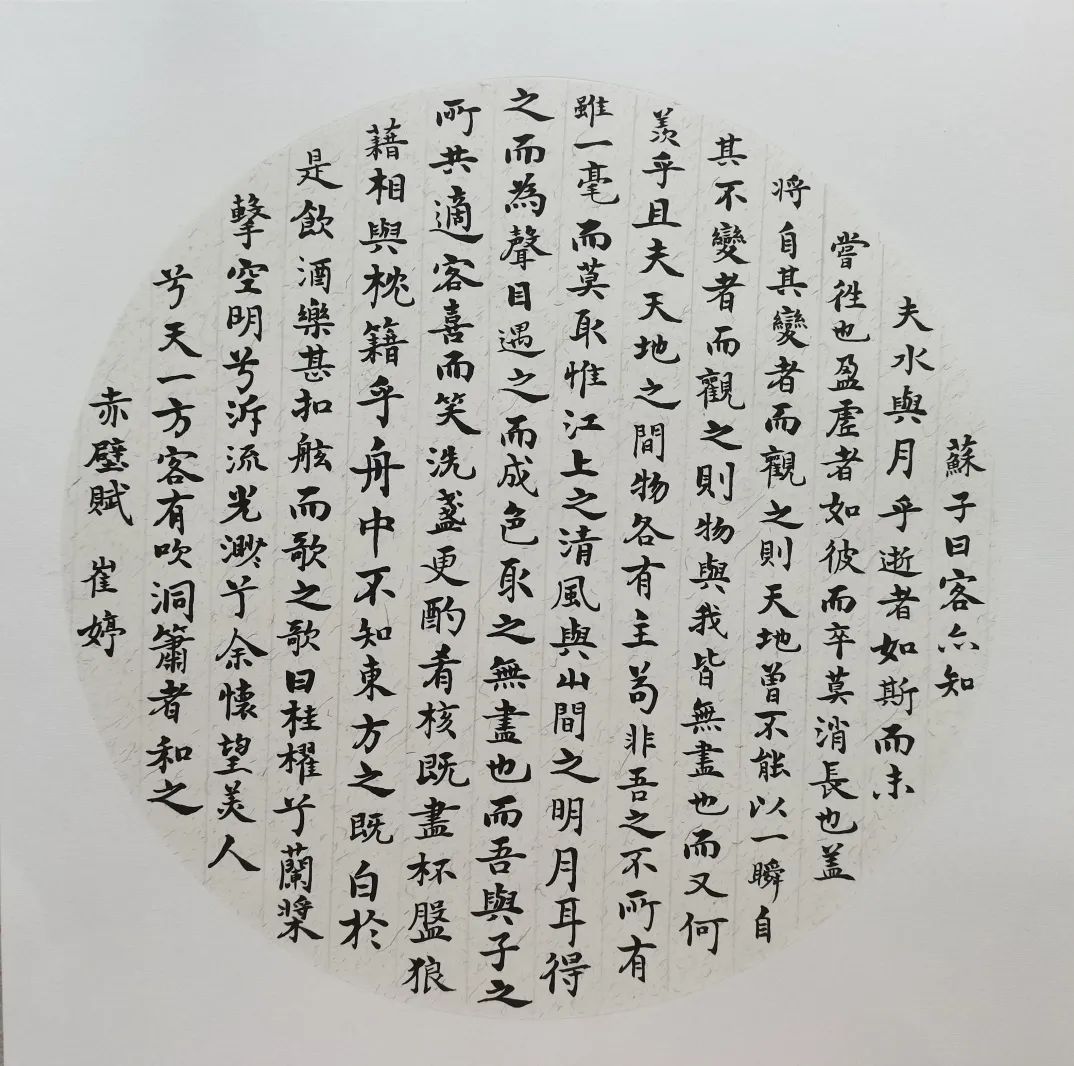 蘇子曰客亦知
夫水與月乎逝者如斯而未
嘗徃也盈虛者如彼而卒莫消長也盖
將自其變者而觀之則天地曾不能以一瞬自
其不變者而觀之則物與我皆無盡也而又何
羨乎且夫天地之間物各有主苟非吾之不所有
雖一毫而莫取惟江上之清風與山間之明月耳得
之而為聲目遇之而成色取之無盡也而吾與子之
所共適客喜而笑洗盞更酌肴核既盡杯盤狼
藉相與枕籍乎舟中不知東方之既白於
是飲酒樂甚扣舷而歌之歌曰桂櫂兮蘭槳
擊空明兮泝流光渺兮余懷望美人
兮天一方客有吹洞簫者和之
赤壁賦 崔婷